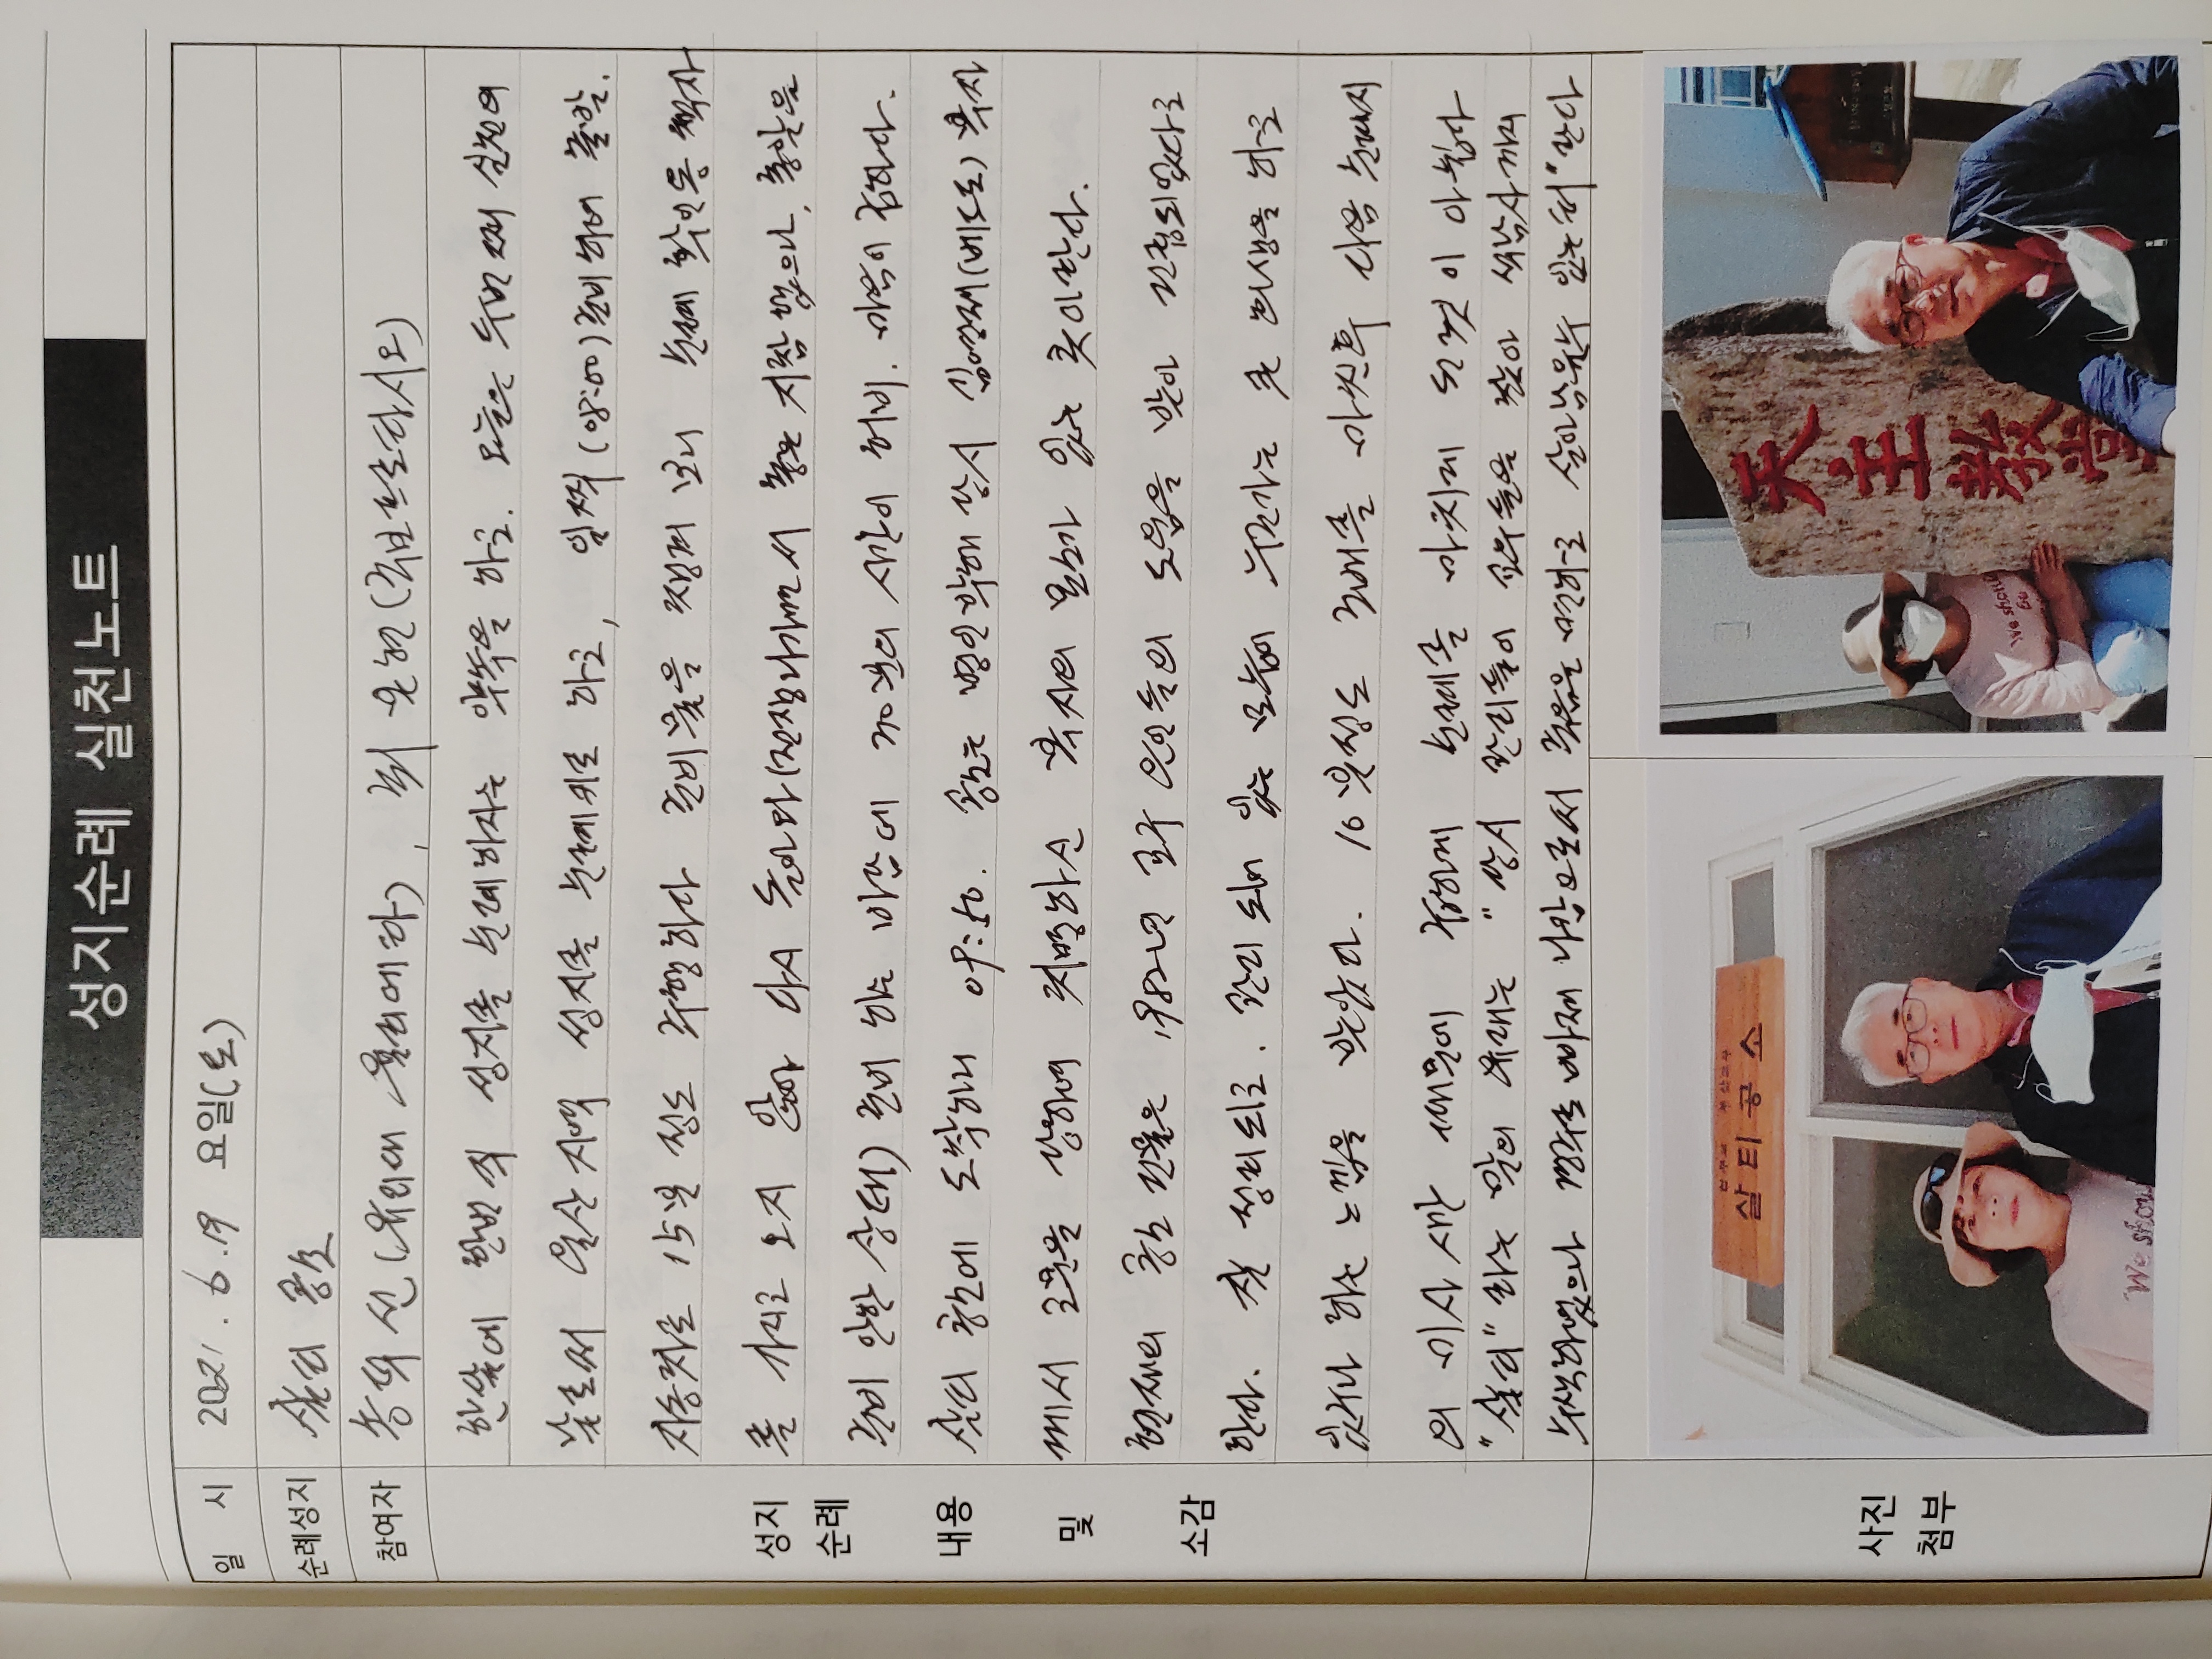 성지순례 실천노트
일 시 2021. 6. 19 요일(토)
순례성지 살티 공소
참여자 송덕선(유리대 율리에따), 최 은헌(주보프로타시오)
한달에 한번씩 성지를 순례하자는 약속을 하고. 오늘은 두번째 실천의
날로써 울산지역 성지를 순례키로 하고, 일찍 (08:00) 준비하여 출발.
자동차로 15분 정도 주행하다 준비물을 챙겨 보니 순례 확인용 책자
를 가지고 오지 않아 다시 돌아와(전쟁나가면서 총은 지참 했으나, 총알은
준비 안한 상태) 준비 하는 바람에 30분의 시간이 허비. 마음이 급하다.
살티 공소에 도착하니 09:50. 공소는 병인박해 당시 김영제(베드로) 복자
께서 고문을 당하여 치명하신 복자의 묘소가 있는 곳이란다.
현재의 공소 건물은 1982년 교구 은인들의 도움을 받아 건립되었다고
한다. 잘 정리되고. 관리 되어 있는 모습이 누군가는 큰 희생을 하고
있구나 하는 느낌을 받았다. 10분정도 조배를 마친후 다음 순례지
의 미사 시간 때문에 급하게 순례를 마치게 된것이 아쉽다
"살티" 라는 말의 유래는 "당시 관리들이 교우들을 찾아 석남사까지
수색하였으나 경주로 빠져 나감으로써 죽음을 면하고 살아남을수 있는 터" 란다
성지
순례
내용
및
소감
사진
첨부
살티공소
We shou
天主敎堂
We should
Go